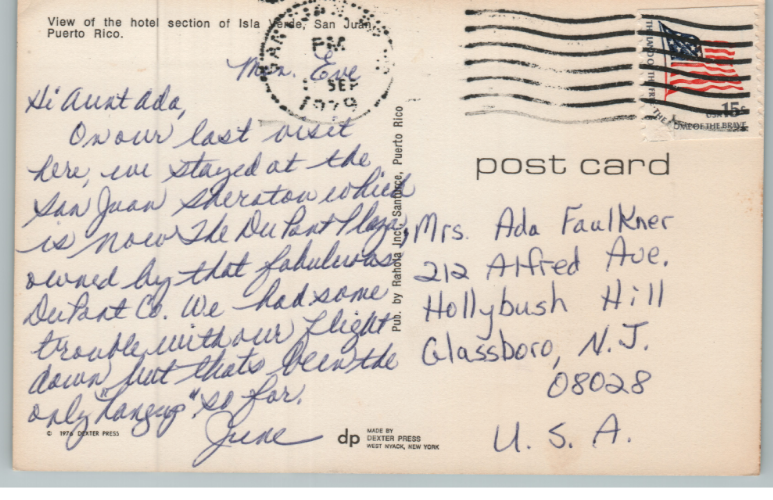 View of the hotel section of Isla Verde, San Juan,
Puerto Rico.
Mon. Eve
Hi Aunt Ada,
On our last visit
here, we stayed at the
San Juan Sheraton which
is now The DuPont Plaza,
owned by that fabulous
DuPont Co. We had some
trouble with our flight
down but thats been the
only "hangup" so far.
June
© 1976 DEXTER PRESS
PM
SEP
1979
Pub. by Rahola Inc., Santurce, Puerto Rico
dp
MADE BY
DEXTER PRESS
WEST NYACK, NEW YORK
THE LAND OF THE FREE
THE HOME OF THE BRAVE
USA 15c
post card
Mrs. Ada Faulkner
212 Alfred Ave.
Hollybush Hill
Glassboro, N.J.
08028
U. S. A.